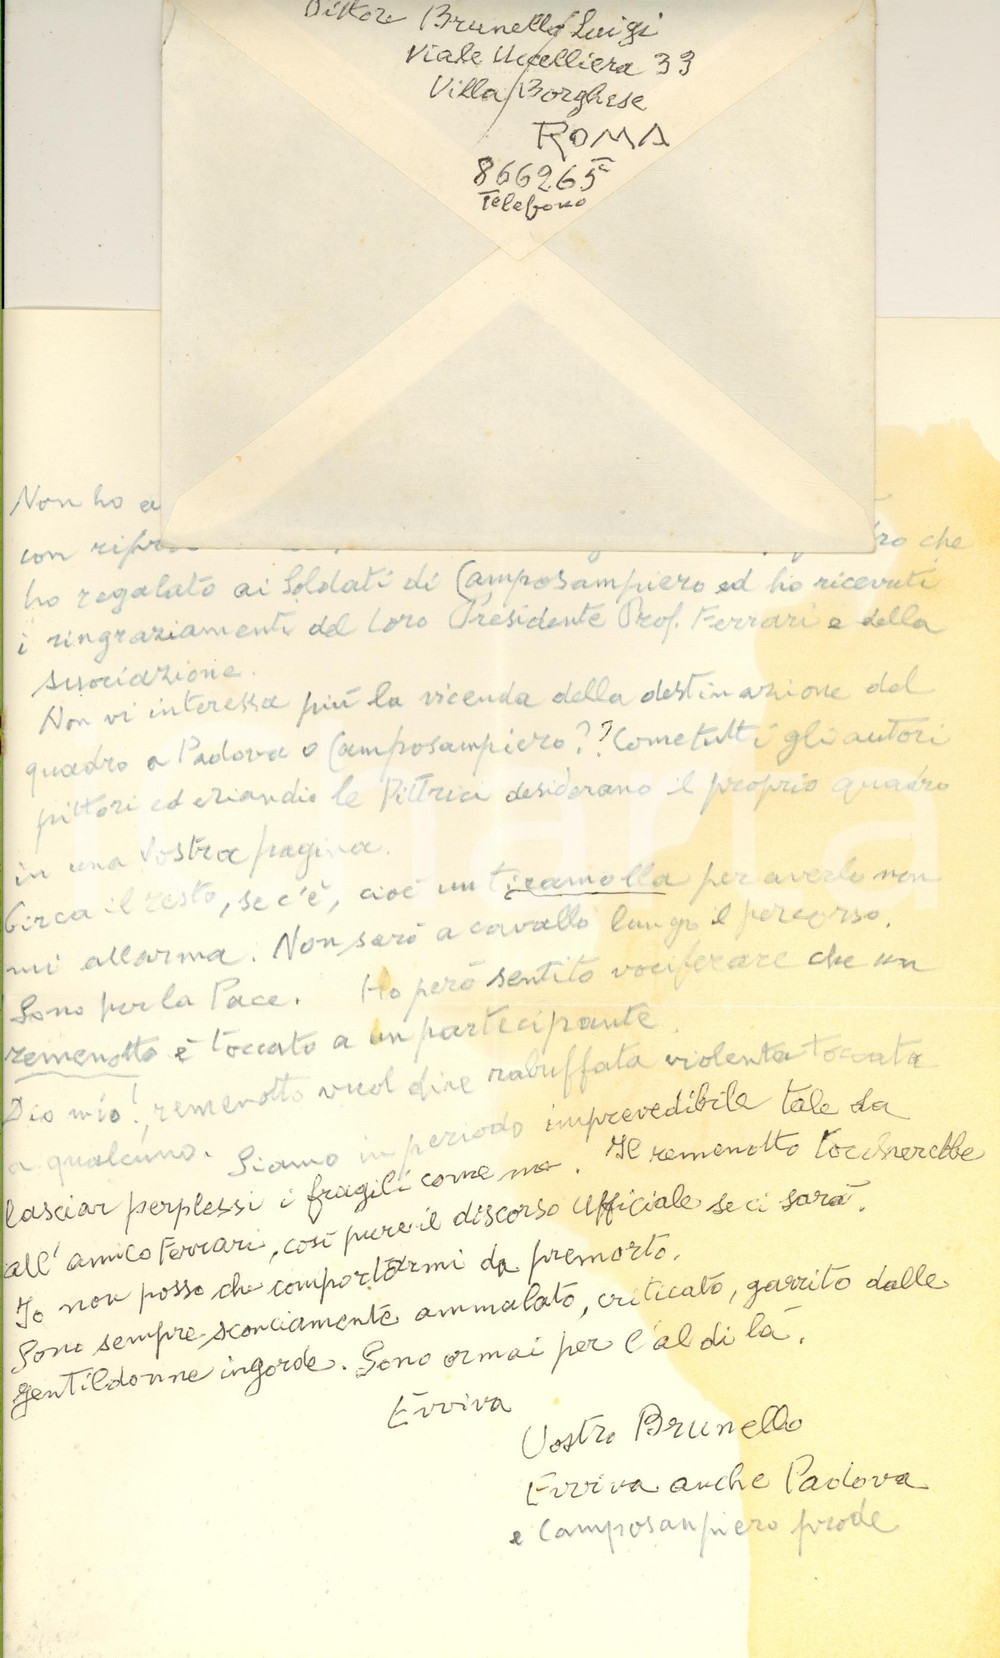 Pittore Brunello Luigi
Viale Uccelliera 33
Villa Borghese
ROMA
866265
Telefono
Non ho a
con ripr che
ho regalato ai Soldati di Camposampiero ed ho ricevuti
i ringraziamenti del loro Presidente Prof. Ferrari e della
Associazione.
Non vi interessa più la vicenda della destinazione del
quadro a Padova o Camposampiero?? Come tutti gli autori
pittori ed eziandio le Pittrici desiderano il proprio quadro
in una Vostra pagina.
Circa il resto, se c'è, cioè un tiramolla per averlo non
mi allarma. Non sarò a cavallo lungo il percorso.
Sono per la Pace. Ho però sentito vociferare che un
remenotto è toccato a un partecipante.
Dio mio!, remenotto vuol dire rabuffata violenta toccata
a qualcuno. Siamo in periodo imprevedibile tale da
lasciar perplessi i fragili come me. Il remenotto toccherebbe
all'amico Ferrari, così pure il discorso ufficiale se ci sarà.
Io non posso che comportarmi da premorto.
Sono sempre sconciamente ammalato, criticato, garrito dalle
gentildonne ingorde. Sono ormai per l'al di là.
Evviva
Vostro Brunello
Evviva anche Padova
e Camposanpiero prode